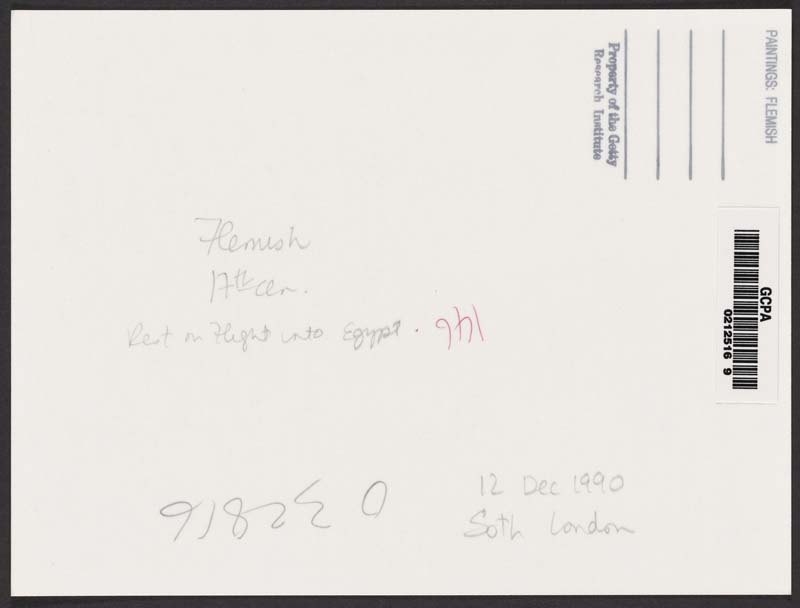 PAINTINGS: FLEMISH
Property of the Getty
Research Institute
GCPA
0212516 9
Flemish
17th cen.
Rest on Flight into Egypt.
12 Dec 1990
Soth London